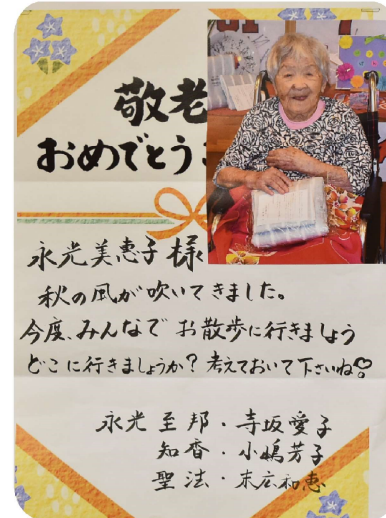 敬老
おめでとうご
永光美恵子様
秋の風が吹いてきました。
今度、みんなでお散歩に行きましょう
どこに行きましょうか?考えておいて下さいね♡
永光至邦・寺坂愛子
知香・小嶋芳子
聖法・末広和恵